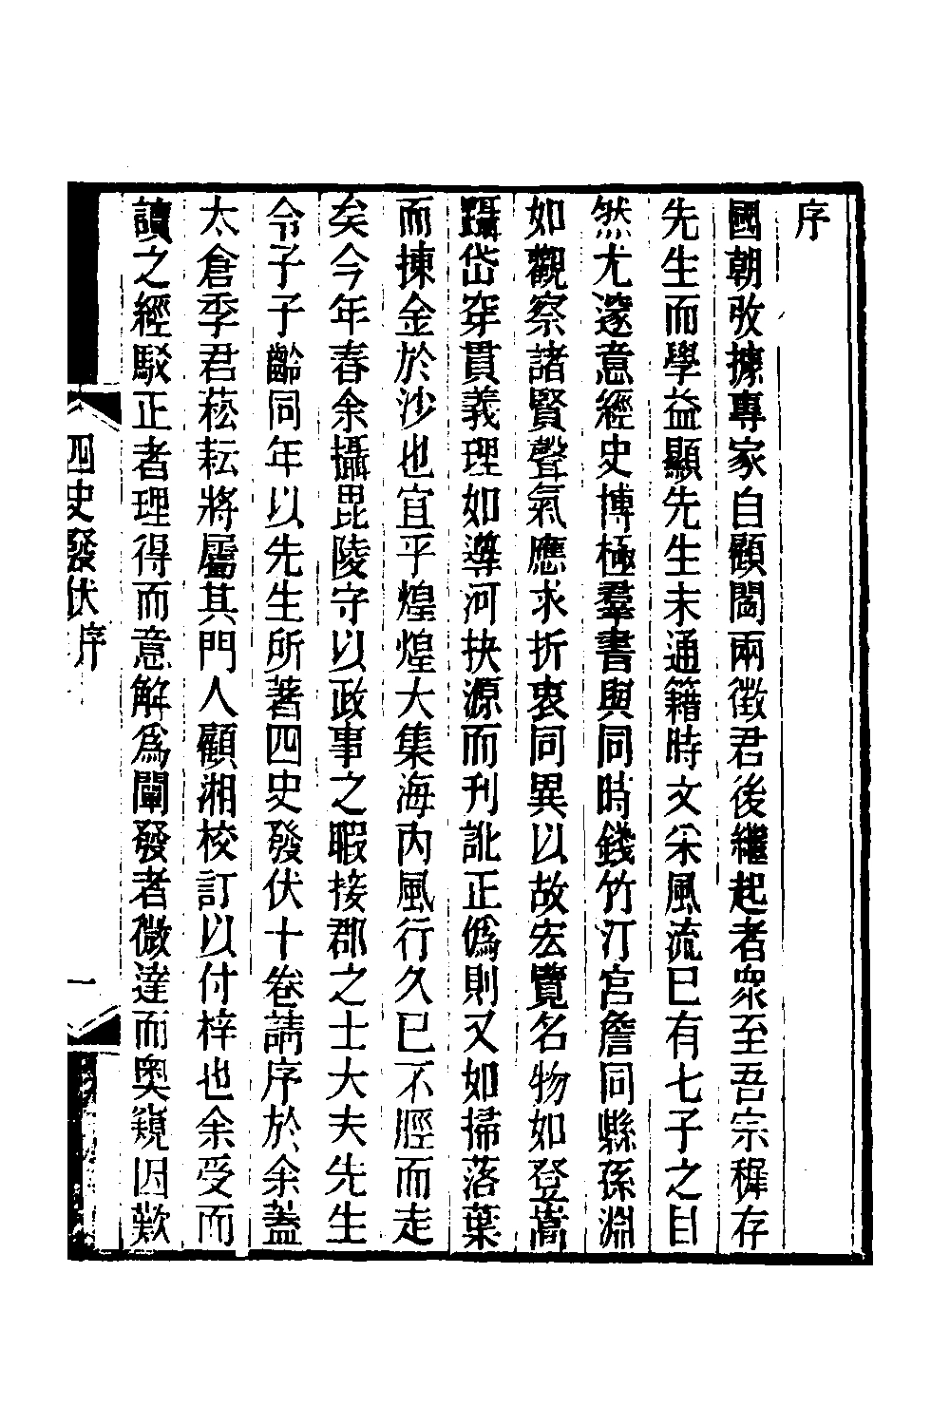 序
國朝攷據專家自顧閻兩徵君後繼起者衆至吾宗穉存
先生而學益顯先生未通籍時文采風流已有七子之目
然尤邃意經史博極羣書與同時錢竹汀宮詹同縣孫淵
如觀察諸賢聲氣應求折衷同異以故宏覽名物如登嵩
躡岱穿貫義理如導河抉源而刊訛正僞則又如掃落葉
而揀金於沙也宜乎煌煌大集海內風行久已不脛而走
矣今年春余攝毘陵守以政事之暇接郡之士大夫先生
令子子齡同年以先生所著四史發伏十卷請序於余蓋
太倉季君菘耘將屬其門人顧湘校訂以付梓也余受而
讀之經駁正者理得而意解爲闡發者微達而奧窺因歎
四史發伏序
一